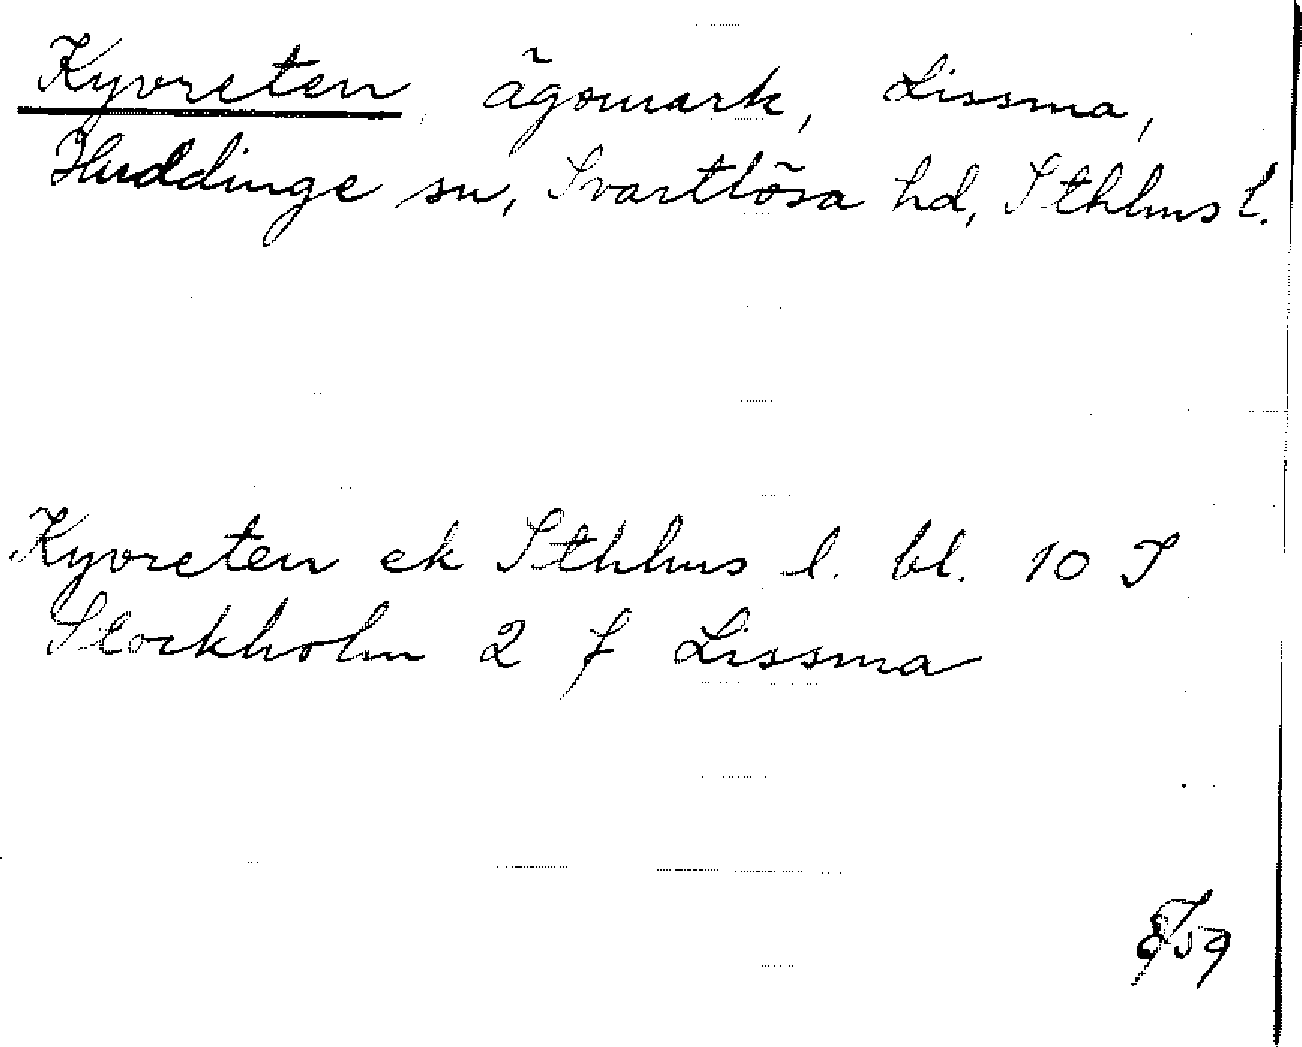 Kyvreten, ägomark, Lissma,
Huddinge sn, Svartlösa hd, Sthlms l.
Kyvreten ek Sthlms l. bl. 10 I
Stockholm 2 f Lissma